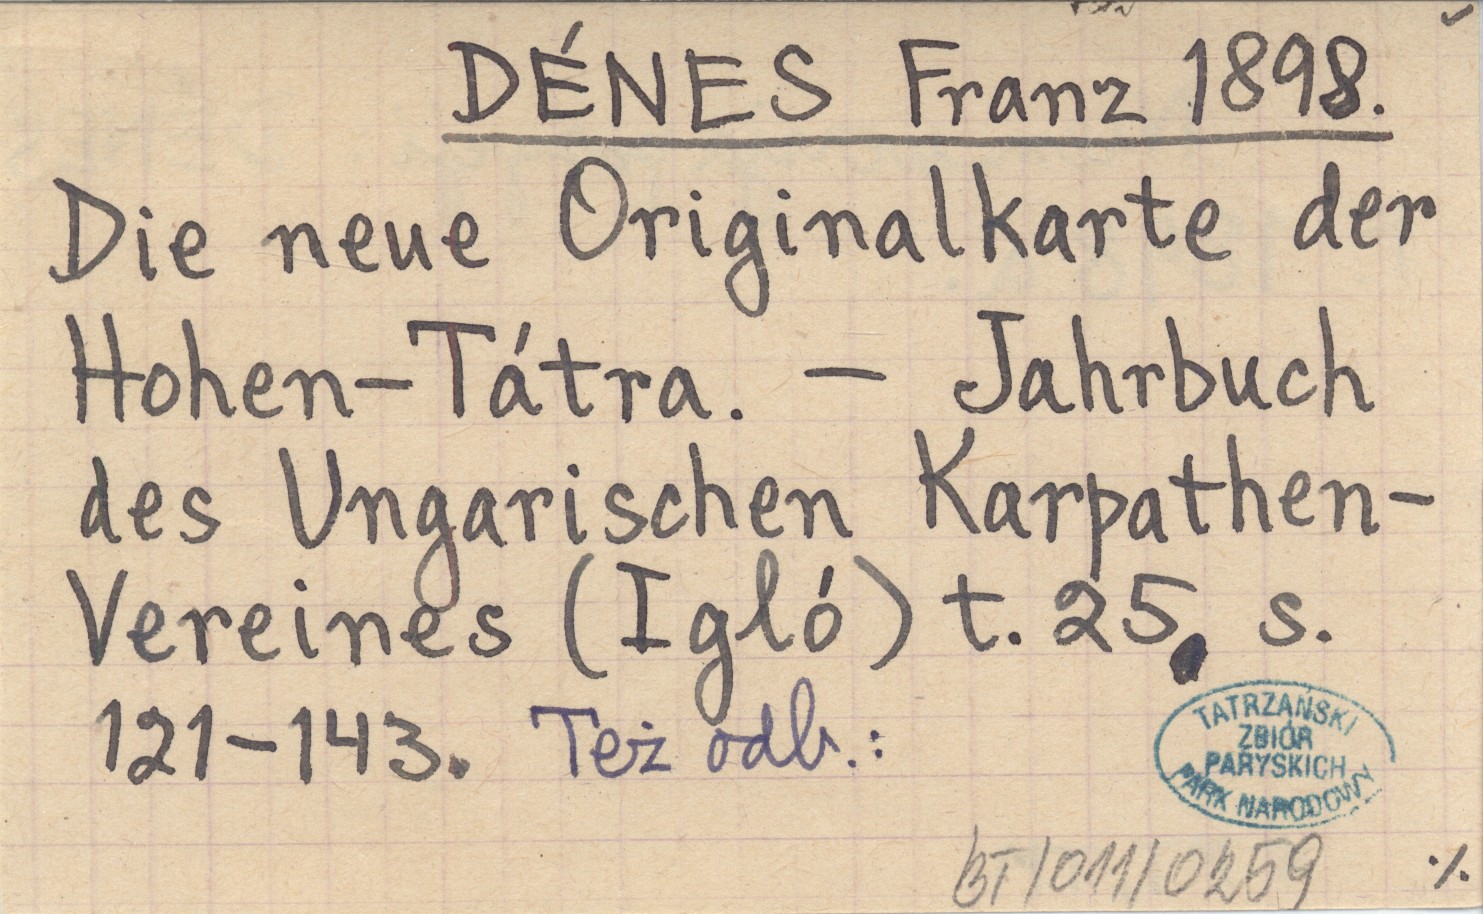 DÉNES Franz 1898.
Die neue Originalkarte der
Hohen-Tátra. — Jahrbuch
des Ungarischen Karpathen-
Vereines (Igló) t. 25, s.
121-143. Też odb.:
TATRZAŃSKI
ZBIÓR
PARYSKICH
PARK NARODOWY
BT/011/0259
./.